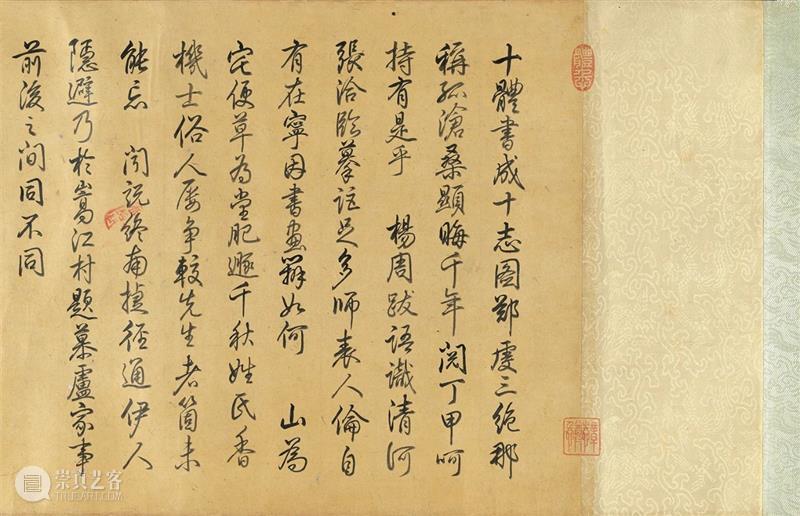 十體書成十志圖鄭虔三絕那
稱孤滄桑顯晦千年閱丁甲呵
持有是乎 楊周跋語識清河
張洽臨摹詎足多師表人倫自
有在寧因書畫辨如何 山為
宅便草為堂肥遯千秋姓氏香
機士俗人屢爭較先生者箇未
能忘 聞說終南捷徑通伊人
隱避乃於嵩江村題慕盧家事
前後之間同不同
崇真艺客
TRUEART.COM